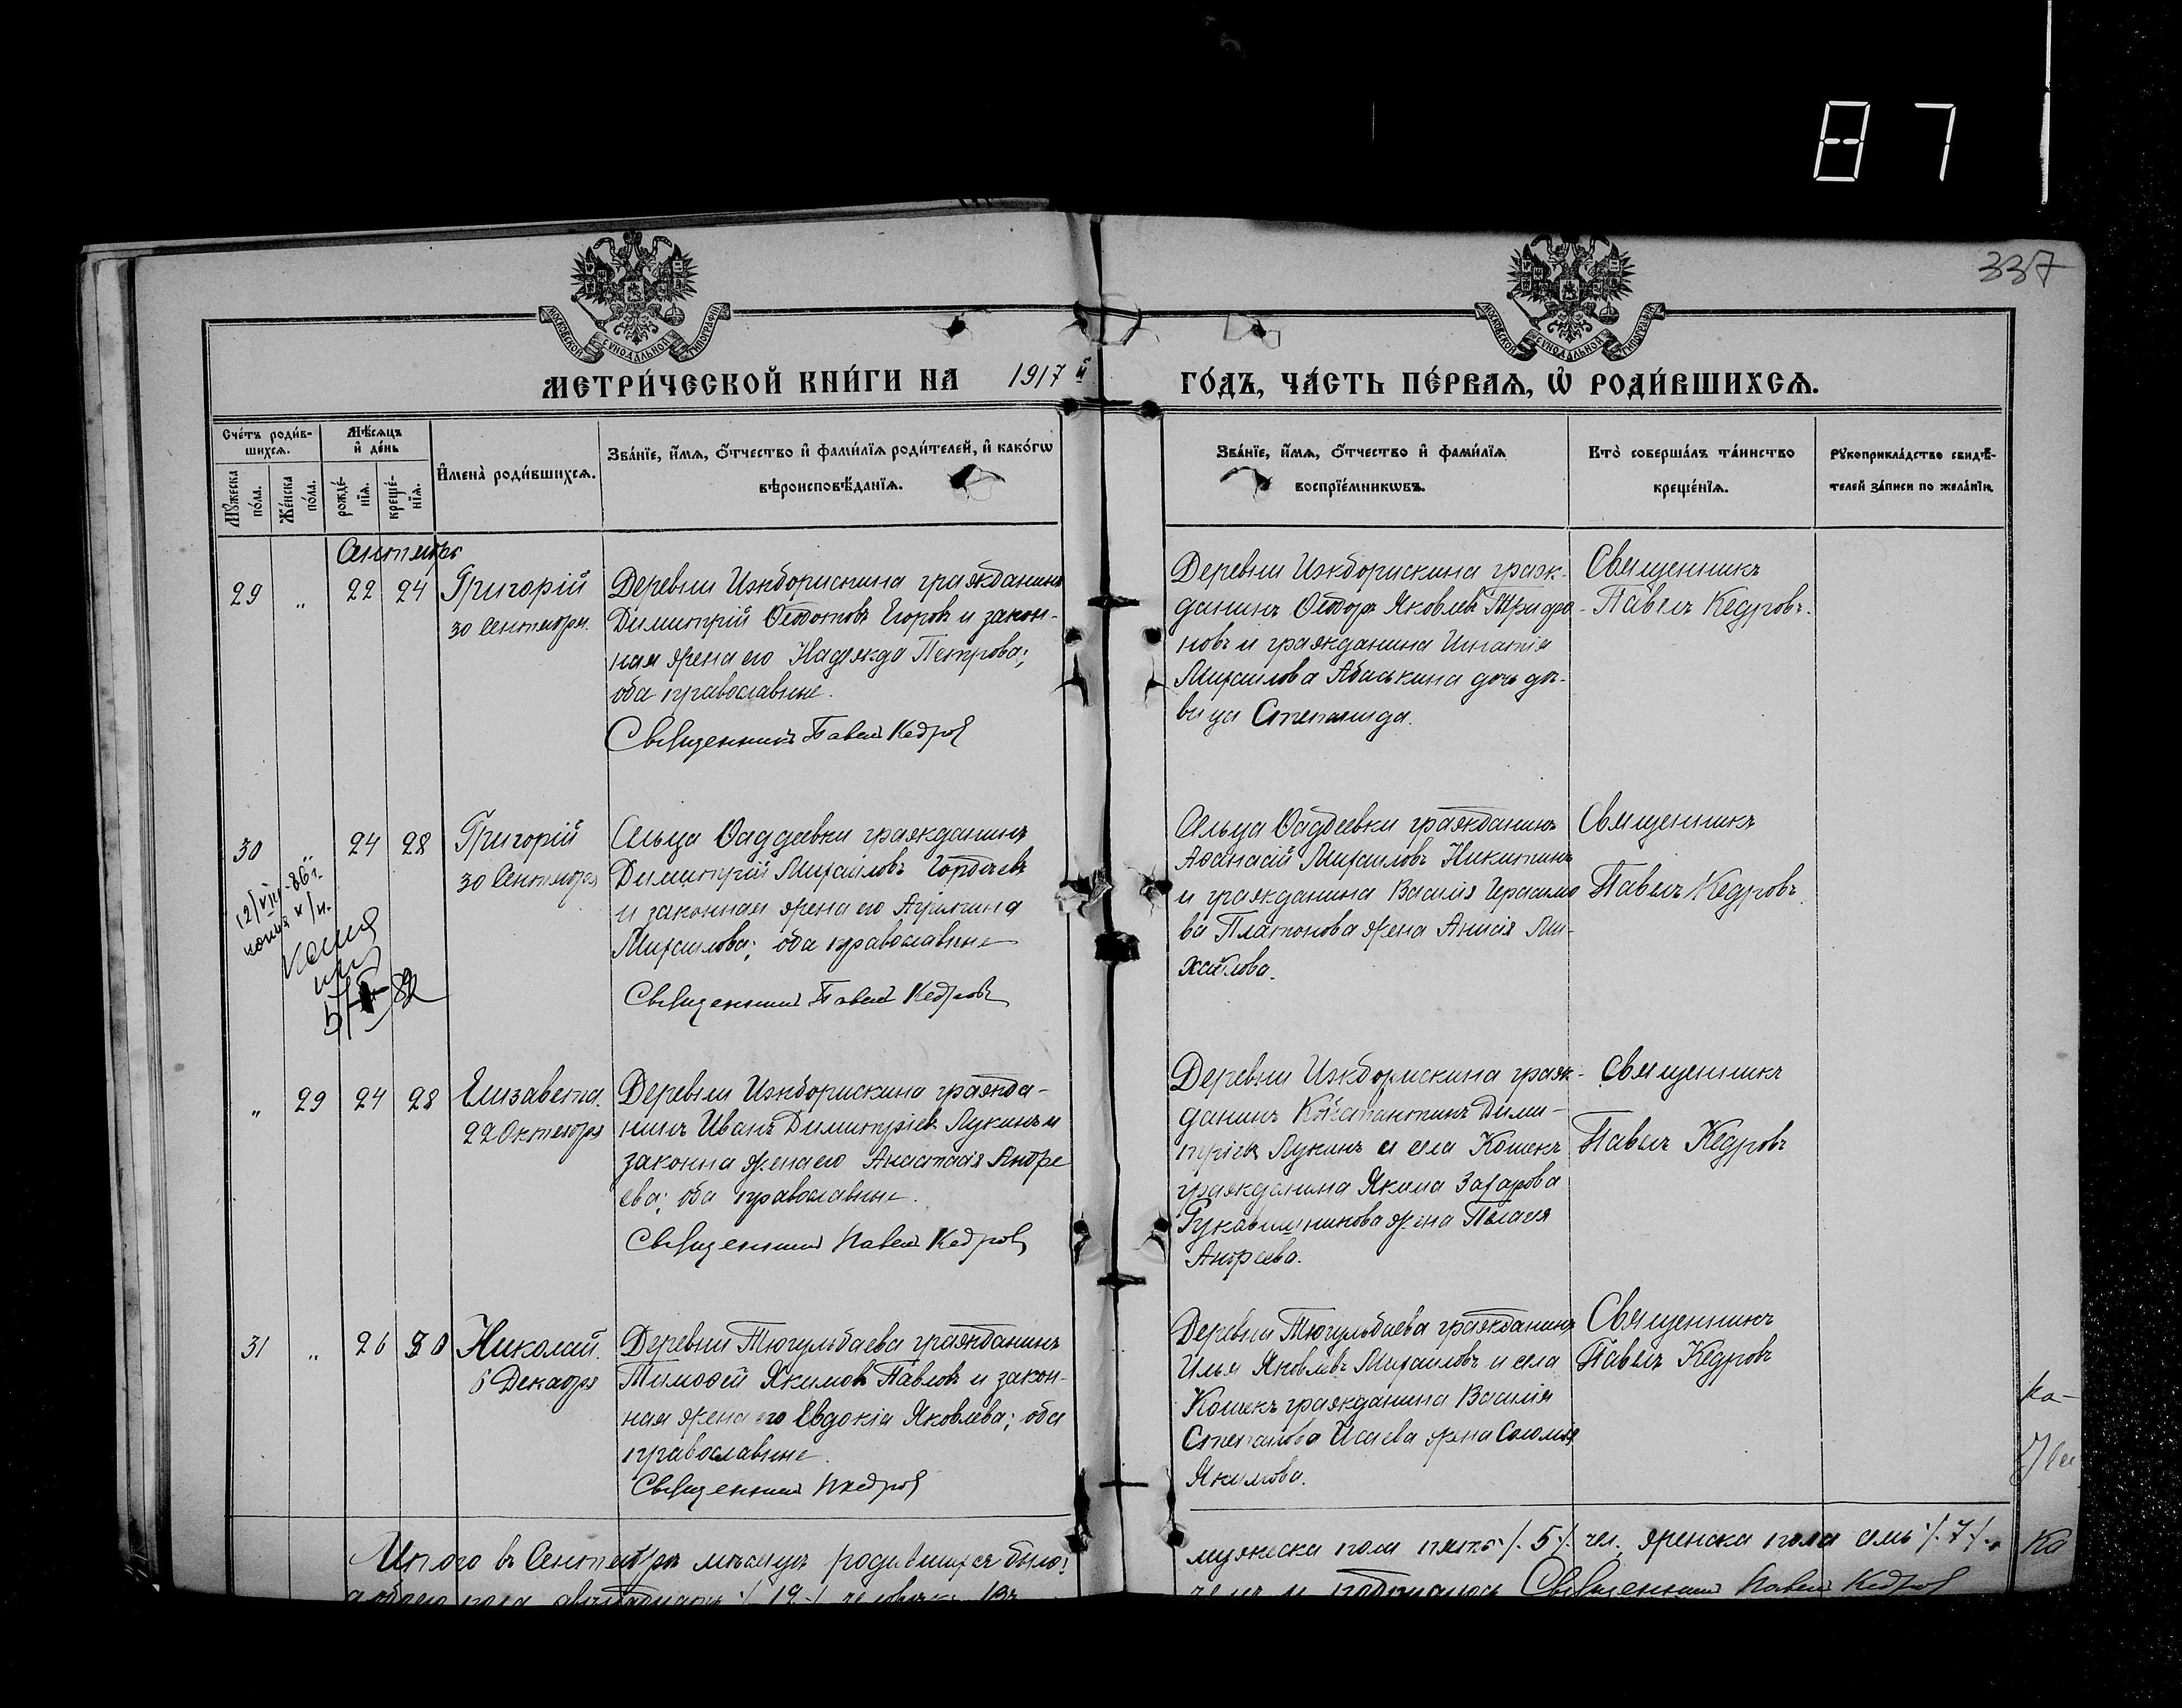 87
337
МОСКОВСКОЙ СѴНОДАЛЬНОЙ ТИПОГРАФІИ
МОСКОВСКОЙ СѴНОДАЛЬНОЙ ТИПОГРАФІИ
МЕТРИ́ЧЕСКОЙ КНИ́ГИ НА 1917й
ГО́ДЪ, ЧА́СТЬ ПЕ́РВАѦ, Ѡ҆ РОДИ́ВШИХСѦ.
Сче́тъ роди́в-
шихсѧ.
Мꙋ́жеска
по́ла.
Же́нска
по́ла.
Мѣ́сѧцъ
и҆ де́нь
рожде́-
нїѧ.
креще́-
нїѧ.
И҆мена̀ роди́вшихсѧ.
Зва́нїе, и҆́мѧ, ѻ҆́тчество и҆ фами́лїѧ роди́телей, и҆ како́гѡ
вѣроисповѣ́данїѧ.
Зва́нїе, и҆́мѧ, ѻ҆́тчество и҆ фами́лїѧ
воспрїе́мникѡвъ.
Кто̀ соверша́лъ та́инство
креще́нїѧ.
Рꙋкоприкла́дство свидѣ́-
телей за́писи по жела́нїю.
Сентябрь
29 " 22 24 Григорій
30 Сентября.
Деревни Ижборискина гражданинъ
Димитрій Ѳедотовъ Егоровъ и закон-
ная жена его Надежда Петрова;
оба православные.
Священникъ Павелъ Кедров
Деревни Ижборискина граж-
данинъ Ѳеодоръ Яковлевъ Трифо-
новъ и гражданина Игнатія
Михаилова Абаськина дочь дѣ-
вица Степанида.
Священникъ
Павелъ Кедровъ.
30 " 24 28 Григорій
30 Сентября
12/VIII-86 г.
копия
копия
82
Сельца Ѳаддеевки гражданинъ
Димитрій Михаиловъ Гордѣевъ
и законная жена его Акилина
Михаилова; оба православные
Священникъ Павелъ Кедровъ
Сельца Ѳаддеевки гражданинъ
Аѳанасій Михаиловъ Никитинъ
и гражданина Василія Герасимо
ва Платонова жена Анисія Ми-
хайлова.
Священникъ
Павелъ Кедровъ.
" 29 24 28 Елизавета.
22 Октября
Деревни Ижборискина гражда-
нинъ Иванъ Димитріевъ Лукинъ и
законна жена его Анастасія Андре
ева; оба православные.
Священникъ Павелъ Кедровъ
Деревни Ижборискина граж-
данинъ Константинъ Дими-
тріевъ Лукинъ и села Кошекъ
гражданина Якима Захарова
Рукавишникова жена Пелагея
Андреева.
Священникъ
Павелъ Кедровъ
31 " 26 30 Николай.
6 Декабря
Деревни Тюгульбаева гражданинъ
Тимоѳей Якимовъ Павловъ и закон-
ная жена его Евдокія Яковлева; оба
православные.
Священникъ ПКедров
Деревни Тюгульбаева гражданинъ
Илья Яковлевъ Михаиловъ и села
Кошекъ гражданина Василія
Степанова Исаева жена Соломія
Якимова.
Священникъ
Павелъ Кедровъ
Итого въ Сентябрѣ мѣсяцѣ родившихся было:
мужеска пола пять /.5/. чел. женска пола семь /.7/.
а обоего пола двѣнадцать /.12./ человѣкъ
Священникъ Павелъ Кедров